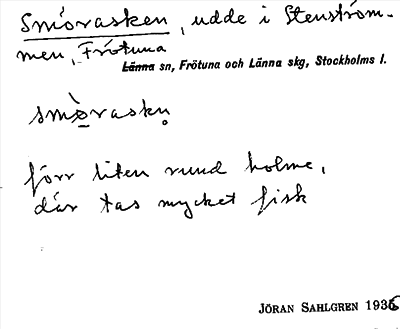 Smörasken, udde i Stenström-
men, Frötuna
Länna sn, Frötuna och Länna skg, Stockholms l.
smö̀raskn̥
förr liten rund holme,
där tas mycket fisk
JÖRAN SAHLGREN 1936